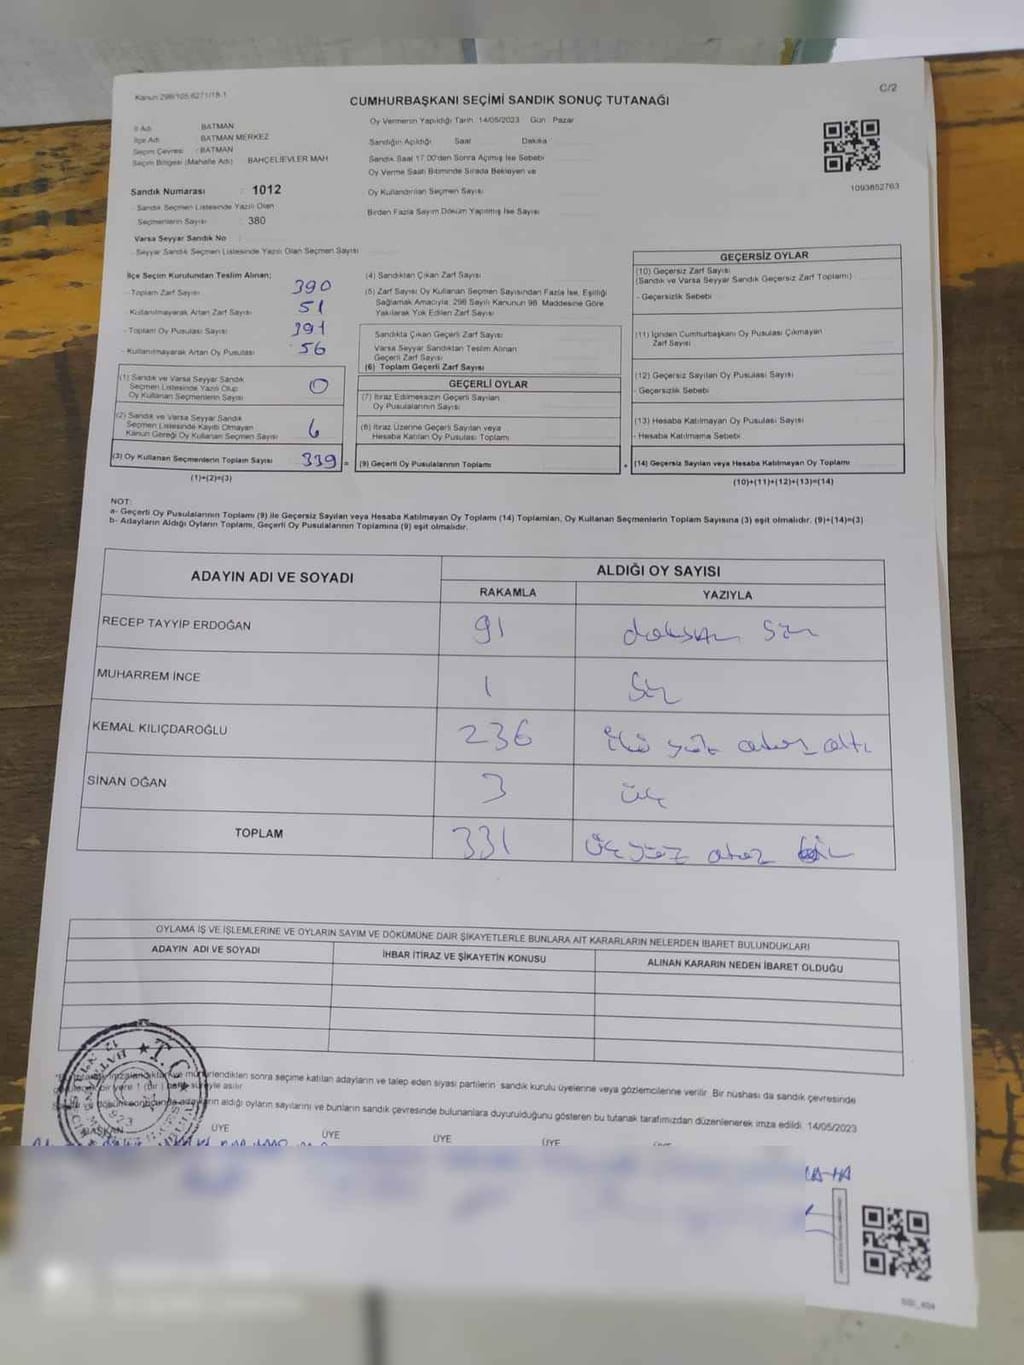 Kanun 298/105 6271/18-1
C/2
CUMHURBAŞKANI SEÇİMİ SANDIK SONUÇ TUTANAĞI
İl Adı BATMAN
İlçe Adı BATMAN MERKEZ
Seçim Çevresi : BATMAN
Seçim Bölgesi (Mahalle Adı) BAHÇELİEVLER MAH
Sandık Numarası : 1012
- Sandık Seçmen Listesinde Yazılı Olan
Seçmenlerin Sayısı 380
Varsa Seyyar Sandık No
- Seyyar Sandık Seçmen Listesinde Yazılı Olan Seçmen Sayısı
Oy Vermenin Yapıldığı Tarih 14/05/2023 Gün Pazar
Sandığın Açıldığı Saat Dakika
Sandık Saat 17.00'den Sonra Açılmış İse Sebebi
Oy Verme Saati Bitiminde Sırada Bekleyen ve
Oy Kullandırılan Seçmen Sayısı
Birden Fazla Sayım Döküm Yapılmış İse Sayısı
1093852763
İlçe Seçim Kurulundan Teslim Alınan;
- Toplam Zarf Sayısı 390
- Kullanılmayarak Artan Zarf Sayısı 51
- Toplam Oy Pusulası Sayısı 391
- Kullanılmayarak Artan Oy Pusulası 56
(1) Sandık ve Varsa Seyyar Sandık
Seçmen Listesinde Yazılı Olup
Oy Kullanan Seçmenlerin Sayısı 0
(2) Sandık ve Varsa Seyyar Sandık
Seçmen Listesinde Kayıtlı Olmayan
Kanun Gereği Oy Kullanan Seçmen Sayısı 6
(3) Oy Kullanan Seçmenlerin Toplam Sayısı 339 =
(1)+(2)=(3)
(4) Sandıktan Çıkan Zarf Sayısı
(5) Zarf Sayısı Oy Kullanan Seçmen Sayısından Fazla İse, Eşitliği
Sağlamak Amacıyla, 298 Sayılı Kanunun 98. Maddesine Göre
Yakılarak Yok Edilen Zarf Sayısı
Sandıkta Çıkan Geçerli Zarf Sayısı
Varsa Seyyar Sandıktan Teslim Alınan
Geçerli Zarf Sayısı
(6) Toplam Geçerli Zarf Sayısı
GEÇERLİ OYLAR
(7) İtiraz Edilmeksizin Geçerli Sayılan
Oy Pusulalarının Sayısı
(8) İtiraz Üzerine Geçerli Sayılan veya
Hesaba Katılan Oy Pusulası Toplamı
(9) Geçerli Oy Pusulalarının Toplamı +
GEÇERSİZ OYLAR
(10) Geçersiz Zarf Sayısı
(Sandık ve Varsa Seyyar Sandık Geçersiz Zarf Toplamı)
- Geçersizlik Sebebi
(11) İçinden Cumhurbaşkanı Oy Pusulası Çıkmayan
Zarf Sayısı
(12) Geçersiz Sayılan Oy Pusulası Sayısı
- Geçersizlik Sebebi
(13) Hesaba Katılmayan Oy Pusulası Sayısı
- Hesaba Katılmama Sebebi
(14) Geçersiz Sayılan veya Hesaba Katılmayan Oy Toplamı
(10)+(11)+(12)+(13)=(14)
NOT:
a- Geçerli Oy Pusulalarının Toplamı (9) ile Geçersiz Sayılan veya Hesaba Katılmayan Oy Toplamı (14) Toplamları, Oy Kullanan Seçmenlerin Toplam Sayısına (3) eşit olmalıdır. (9)+(14)=(3)
b- Adayların Aldığı Oyların Toplamı, Geçerli Oy Pusulalarının Toplamına (9) eşit olmalıdır.
ADAYIN ADI VE SOYADI ALDIĞI OY SAYISI
RAKAMLA YAZIYLA
RECEP TAYYİP ERDOĞAN 91 doksan bir
MUHARREM İNCE 1 bir
KEMAL KILIÇDAROĞLU 236 iki yüz otuz altı
SİNAN OĞAN 3 üç
TOPLAM 331 üçyüz otuz bir
OYLAMA İŞ VE İŞLEMLERİNE VE OYLARIN SAYIM VE DÖKÜMÜNE DAİR ŞİKAYETLERLE BUNLARA AİT KARARLARIN NELERDEN İBARET BULUNDUKLARI
ADAYIN ADI VE SOYADI İHBAR İTİRAZ VE ŞİKAYETİN KONUSU ALINAN KARARIN NEDEN İBARET OLDUĞU
mühürlendikten sonra seçime katılan adayların ve talep eden siyasi partilerin sandık kurulu üyelerine veya gözlemcilerine verilir. Bir nüshası da sandık çevresinde
bir yere 1 (bir) hafta süreyle asılır
aldığı oyların sayılarını ve bunların sandık çevresinde bulunanlara duyurulduğunu gösteren bu tutanak tarafımızdan düzenlenerek imza edildi. 14/05/2023
BAŞKAN ÜYE ÜYE ÜYE ÜYE
T.C.